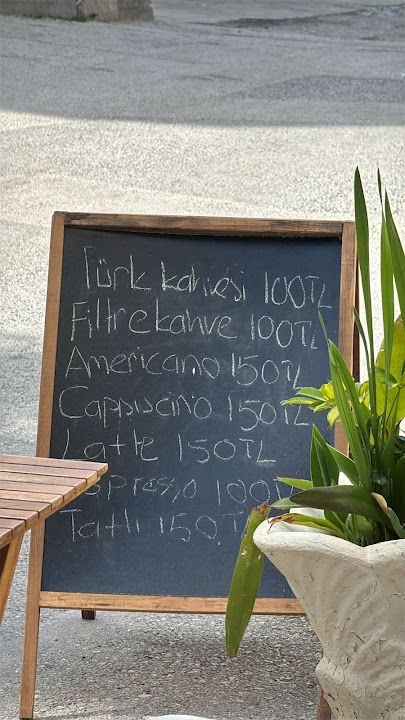 Türk kahvesi 100TL
Filtre kahve 100TL
Americano 150TL
Cappucino 150TL
Latte 150TL
Espresso 100TL
Tatlı 150TL